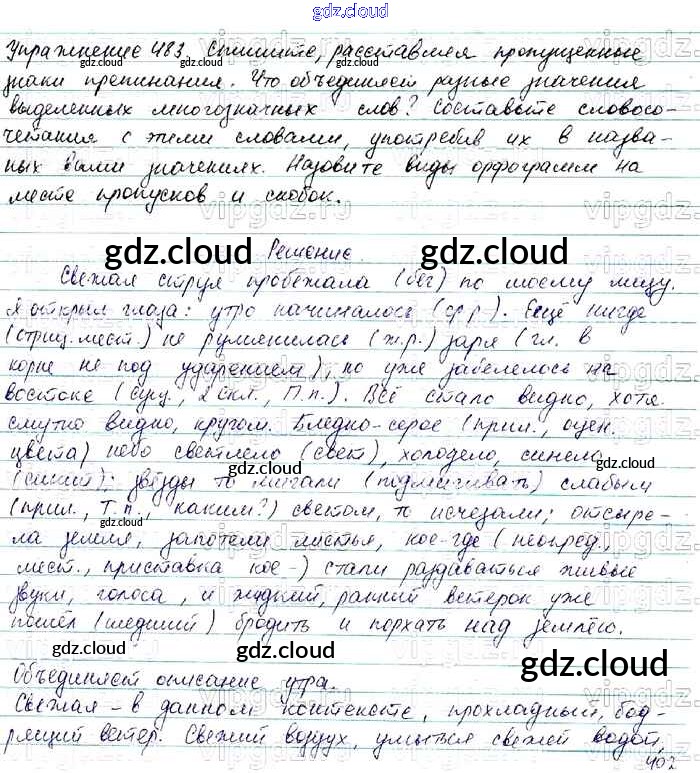 gdz.cloud
Упражнение 483. Спишите, расставляя пропущенные
знаки препинания. Что объединяет разные значения
выделенных многозначных слов? Составьте словосо-
четания с этими словами, употребив их в назва-
ных вами значениях. Назовите виды орфограмм на
месте пропусков и скобок.
Решение.
Свежая струя пробежала (бег) по моему лицу.
Я открыл глаза: утро начиналось (ср.р.). Ещё нигде
(отриц. мест.) не румянилась (ж.р.) заря (гл. в
корне не под ударением), но уже забелелось на
востоке (сущ., 2 скл., П.п.). Всё стало видно, хотя
смутно видно, кругом. Бледно-серое (прил., оцен.
цвета) небо светлело (свет), холодело, синело
(синий); звёзды то мигали (подмигивать) слабым
(прил., Т.п., каким?) светом, то исчезали; отсыре-
ла земля, запотели листья, кое-где (неопред.
мест., приставка кое-) стали раздаваться живые
звуки, голоса, и жидкий, ранний ветерок уже
пошёл (шедший) бродить и порхать над землёю.
Объединяет описание утра.
Свежая - в данном контексте, прохладный, бод-
рящий ветер. Свежий воздух, умыться свежей водой,
402
gdz.cloud
gdz.cloud
gdz.cloud
gdz.cloud
gdz.cloud
gdz.cloud
gdz.cloud
gdz.cloud
gdz.cloud
gdz.cloud
gdz.cloud